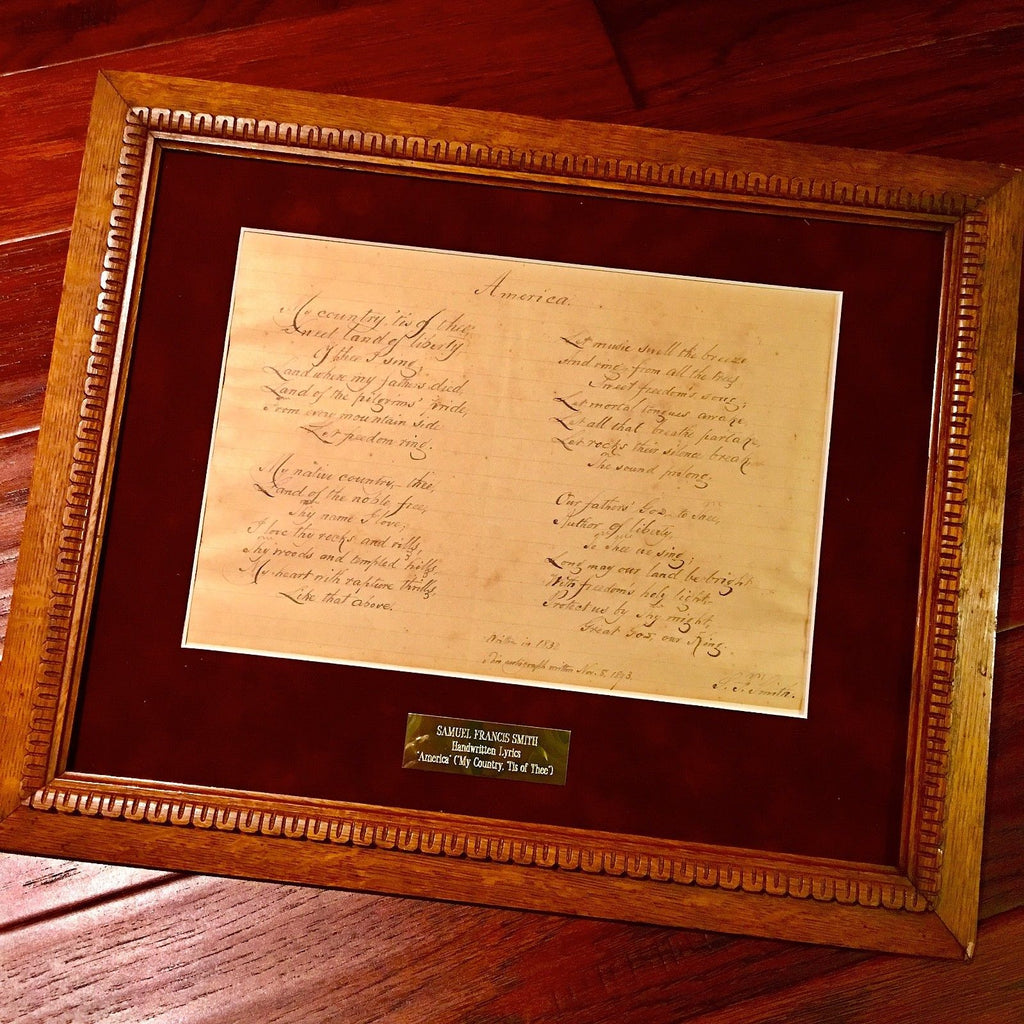 America.
My country, 'tis of thee,
Sweet land of liberty
Of thee I sing;
Land where my fathers died,
Land of the pilgrims' pride,
From every mountain side
Let freedom ring.
My native country, thee,
Land of the noble free,
Thy name I love;
I love thy rocks and rills,
Thy woods and templed hills,
My heart with rapture thrills,
Like that above.
Let music swell the breeze
And ring from all the trees
Sweet freedom's song;
Let mortal tongues awake,
Let all that breathe partake,
Let rocks their silence break
The sound prolong.
Our fathers' God, to Thee,
Author of liberty,
To Thee we sing;
Long may our land be bright
With freedom's holy light,
Protect us by Thy might,
Great God, our King.
Written in 1832
This autograph written Nov. 8, 1893.
S. F. Smith.
SAMUEL FRANCIS SMITH
Handwritten Lyrics
"America" ("My Country, 'Tis of Thee")